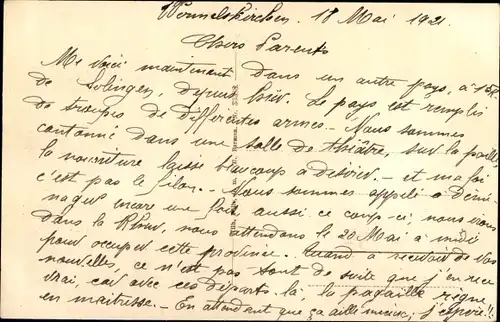 Wermelskirchen, 18 Mai 1921.
Chers Parents
Me voici maintenant dans un autre pays, à 15K
de Solingen, depuis hier. Le pays est remplis
de troupes de differentes armes. - Nous sommes
cantonné dans une salle de théâtre, sur la paille
la nourriture laisse beaucoup a desirer - et ma foi
c'est pas le filon. - Nous sommes appelé a démé-
nager encore une fois aussi ce coup-ci, nous irons
dans la Rhur, nous attendons le 20 Mai à midi
pour occuper cette province. Quand a recevoir de vos
nouvelles, ce n'est pas tant de suite que j'en rece
vrai, car avec ces départs là, la pagaille règne
en maitresse. - En attendant que ça aille mieux, j'espère!!